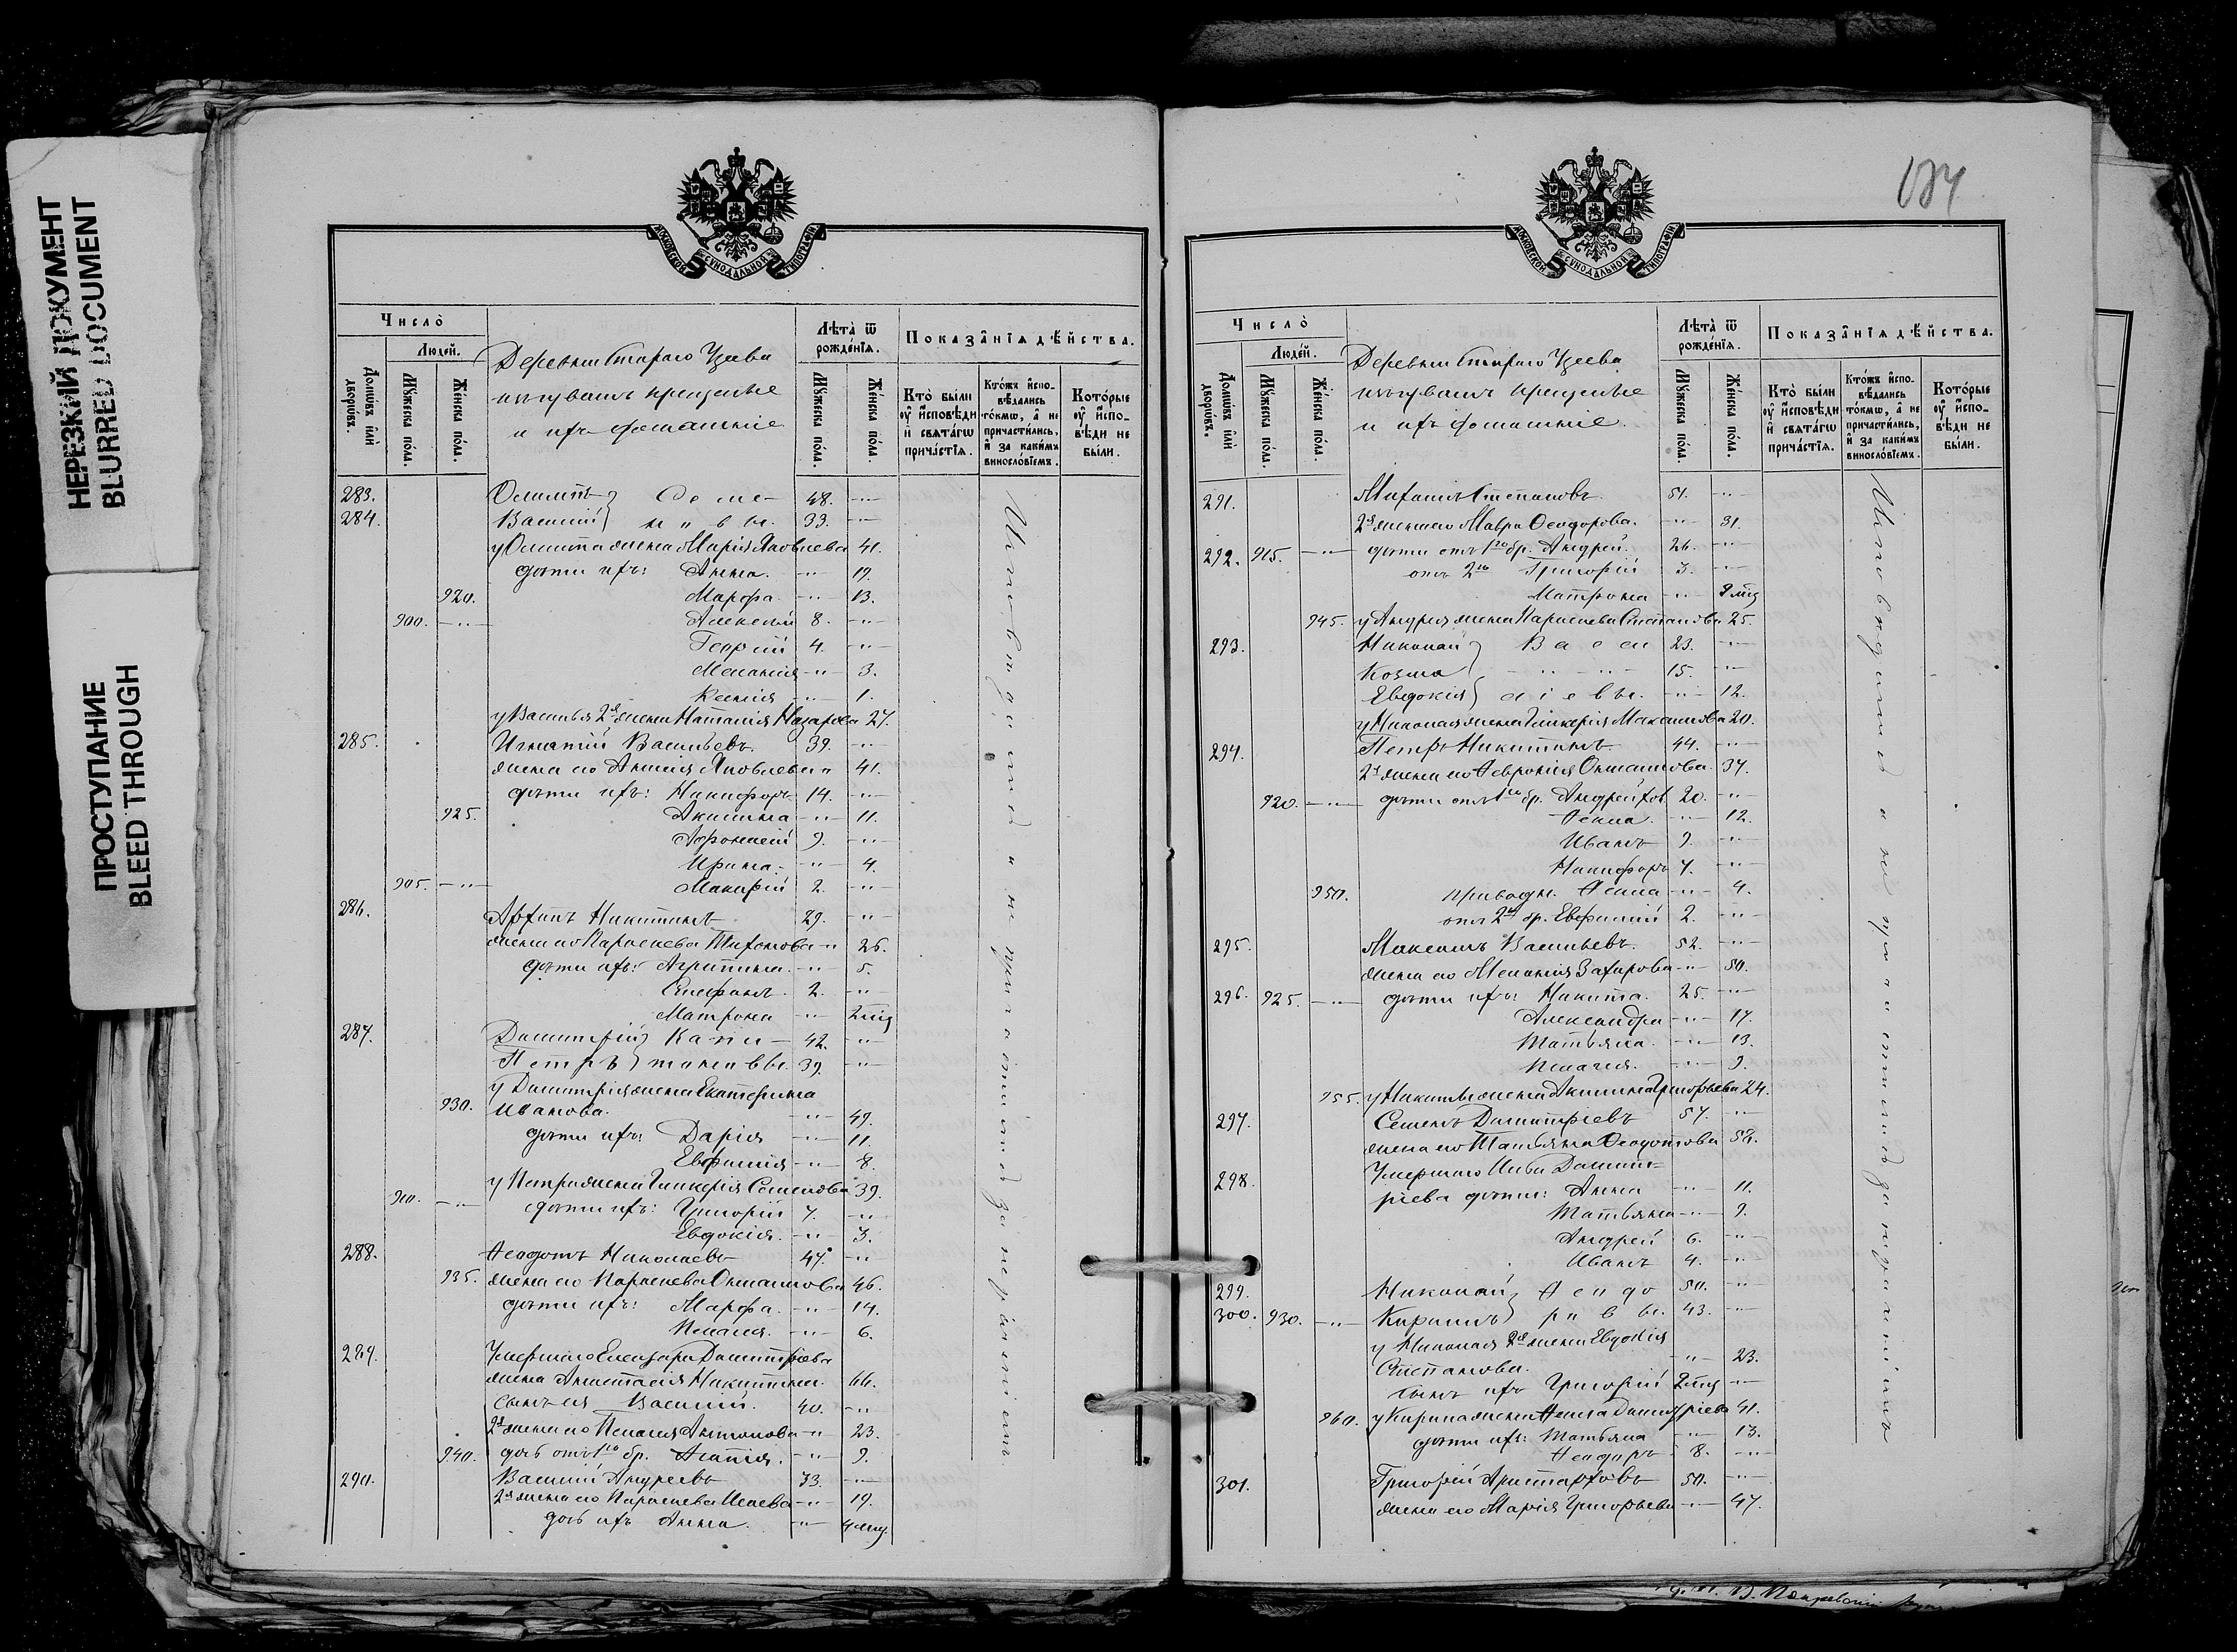 НЕРЕЗКИЙ ДОКУМЕНТ
BLURRED DOCUMENT
ПРОСТУПАНИЕ
BLEED THROUGH
МОСКОВСКОЙ СѴНОДАЛЬНОЙ ТИПОГРАФІИ
Число̀
Людей.
Домѡвъ или дворѡвъ.
Мꙋжеска пола.
Женска пола.
Деревни Стараго Узеева
крещеные
и ихъ домашніе
Лѣта ѿ рожденїѧ.
Мꙋжеска пола.
Женска пола.
Показанїѧ дѣйства.
Кто были ᲂу исповѣди и свѧтагѡ причастїѧ.
Ктожъ исповѣдались токмѡ, а не причастились, и за какимъ винословїемъ.
Которые ᲂу исповѣди не были.
283. Осипъ Семе- 48. -"-
284. Василій новы. 33. -"-
у Осипа жена Марія Яковлева 41.
дѣти ихъ: Анна. -"- 19.
920. Марфа. -"- 13.
900. -"- Алексѣй 8. -"-
Георгій 4. -"-
Меланія -"- 3.
Ксенія -"- 1.
у Василья 2я жена Наталія Назарова 27.
285. Игнатій Васильевъ. 39. -"-
жена его Анисія Яковлева " 41.
дѣти ихъ: Никифоръ 14. -"-
925. Акилина -"- 11.
9. -"-
Ирина. -"- 4.
905. -"- Макарій 2. -"-
286. Архипъ Никитинъ 29. -"-
жена его Параскева Тихонова -"- 26.
дѣти ихъ: Агрипина. -"- 5.
Стефанъ. 2. -"-
Матрона -"- 2 мѣс
287. Димитрій Капи- 42. -"-
Петръ тоновы. 39. -"-
у Димитрія жена Екатерина
930. Иванова. -"- 49.
дѣти ихъ: Дарія -"- 11.
Евфимія -"- 8.
у Петра жена Гликерія Семенова 39.
910. -"- дѣти ихъ: Григорій 7. -"-
Евдокія. -"- 3.
288. Ѳеодотъ Николаевъ 47. -"-
935. жена его Параскева 46.
дѣти ихъ: Марфа. -"- 14.
Пелагея. -"- 6.
289. Умершаго Елеазара Димитріева
жена Анастасія Никитина. 66.
сынъ ея Василій. 40. -"-
2я жена его Пелагея Антонова -"- 23.
940. дочь отъ 1го бр. -"- 9.
290. Василій Андреевъ 33. -"-
2я жена его Параскева Исаева -"- 19.
дочь ихъ Анна. -"- 4 мѣс.
Исповѣдались и не причастились за нераченіемъ
МОСКОВСКОЙ СѴНОДАЛЬНОЙ ТИПОГРАФІИ
Число̀
Людей.
Домѡвъ или дворѡвъ.
Мꙋжеска пола.
Женска пола.
Деревни Стараго Узеева
крещеные
и ихъ домашніе.
Лѣта ѿ рожденїѧ.
Мꙋжеска пола.
Женска пола.
Показанїѧ дѣйства.
Кто были ᲂу исповѣди и свѧтагѡ причастїѧ.
Ктожъ исповѣдались токмѡ, а не причастились, и за какимъ винословїемъ.
Которые ᲂу исповѣди не были.
291. Михаилъ Степановъ. 51. -"-
2я жена его Мавра Ѳеодорова. -"- 31.
292. 915. -"- дѣти отъ 1го бр. Андрей. 26. -"-
отъ 2го Григорій 3. -"-
Матрона -"-
945. у Андрея жена Параскева Степанова 25.
293. Николай Васи 23. -"-
Козма -"- 15. -"-
Евдокія лiевы. -"- 12.
у Николая жена Гликерія 20.
294. Петръ Никитинъ 44. -"-
2я жена его 37.
920. -"- дѣти отъ 1го бр. Андрей 20. -"-
Ѳекла. -"- 12.
Иванъ 9. -"-
Никифоръ 7. -"-
950. приводн. Ѳекла -"- 4.
отъ 2го бр. Евфимій 2. -"-
295. Максимъ Васильевъ. 52. -"-
жена его Меланія Захарова -"- 50.
296. 925. -"- дѣти ихъ: Никита. 25. -"-
Александра -"- 17.
Татьяна. -"- 13.
Пелагея. -"- 9.
955. у Никиты жена Акилина Григорьева 24.
297. Семенъ Димитріевъ 57. -"-
жена его Татьяна Ѳеодотова
298. Умершаго Дмит=
ріева дѣти: Анна -"- 11.
Татьяна -"- 9.
Андрей 6. -"-
Иванъ 4. -"-
299. Николай Ѳеодо 50. -"-
300. 930. -"- Кирилъ ровы. 43. -"-
у Николая 2я жена Евдокія
Степанова. -"- 23.
сынъ ихъ Григорій 2 мѣс -"-
960. у Кирила жена Димитріева 41.
дѣти ихъ: Татьяна -"- 13.
Ѳеодоръ 8. -"-
301. Григорій Аристарховъ 50. -"-
жена его Марія Григорьева -"- 47.
Исповѣдались и не причастились за нераченіемъ